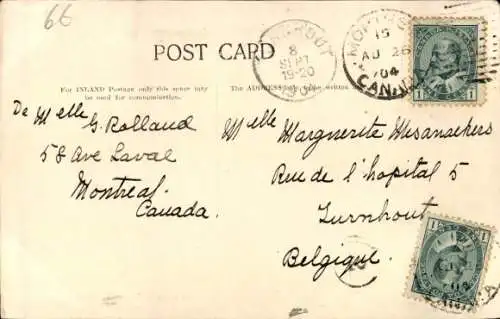 66
POST CARD
TURNHOUT
8
SEPT
19-20
MONTREAL
15
AU 26
04
CANADA
1
1
For INLAND Postage only this space may
be used for communication.
The ADDRESS only to be written
De Melle G. Rolland
58 Ave Laval
Montreal
Canada.
Melle Marguerite Mesmaekers
Rue de l'hopital 5
Turnhout
Belgique.
1
1